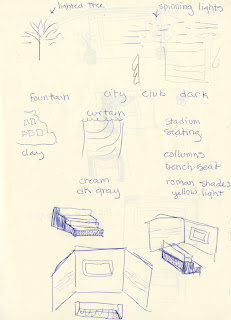 lighted tree
spinning lights
fountain
city
club
dark
curtain
stadium
seating
clay
collumns
bench seat
cream
dk gray
roman shades
yellow light